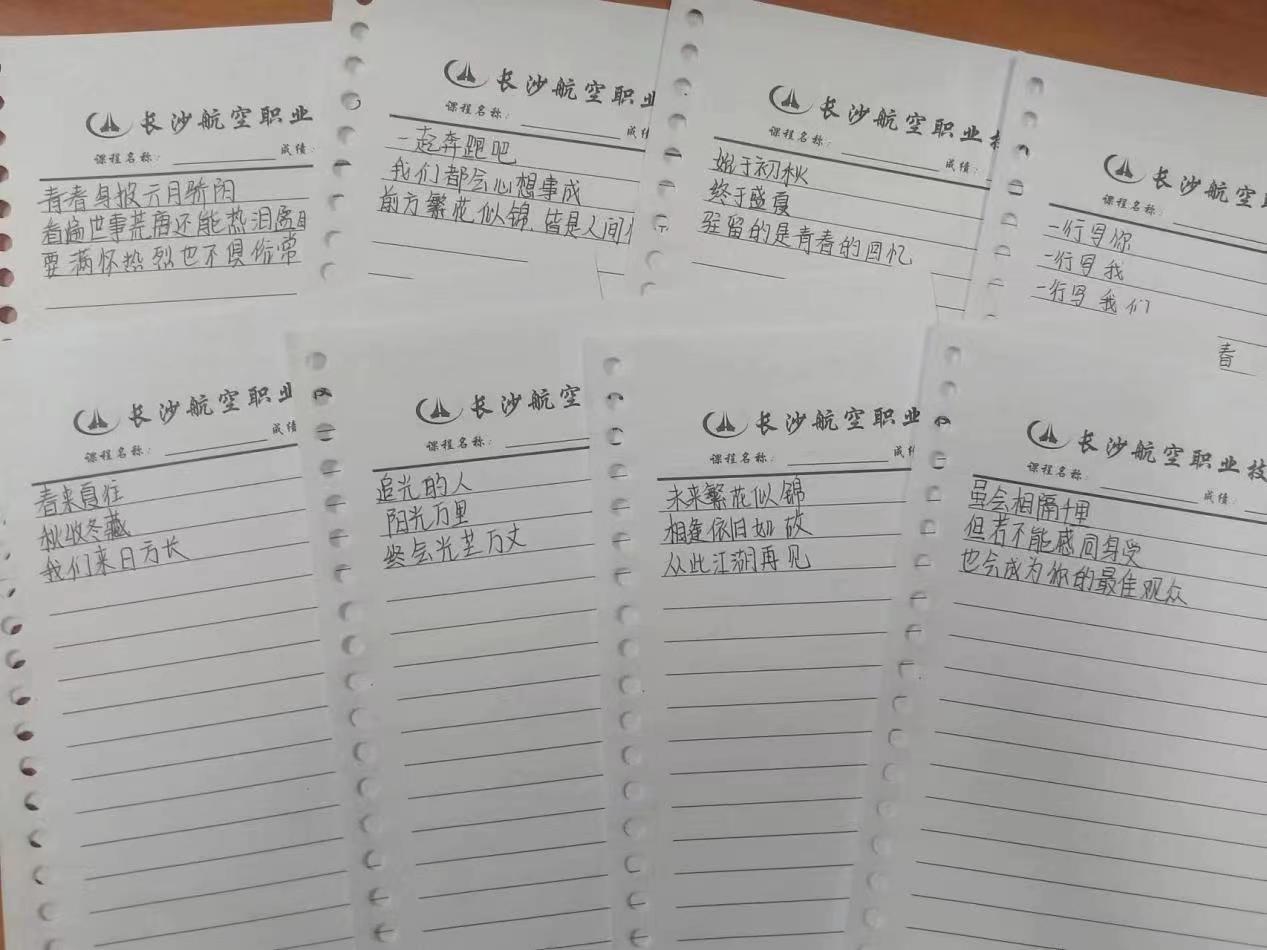 长沙航空职业
课程名称:
成绩:
青春身披六月骄阳
看遍世事荒唐还能热泪盈眶
要满怀热烈也不惧俗常
长沙航空职业
课程名称:
成绩
一起奔跑吧
我们都会心想事成
前方繁花似锦 皆是人间
长沙航空职业技
课程名称:
成绩:
始于初秋
终于盛夏
驻留的是青春的回忆
长沙航空职
课程名称:
一行写你
一行写我
一行写我们
春
长沙航空职业
课程名称:
成绩
春来夏往
秋收冬藏
我们来日方长
长沙航空
课程名称:
追光的人
阳光万里
终会光芒万丈
长沙航空职业
课程名称:
成绩
未来繁花似锦
相逢依旧如故
从此江湖再见
长沙航空职业技
课程名称:
成绩:
虽会相隔千里
但若不能感同身受
也会成为你的最佳观众